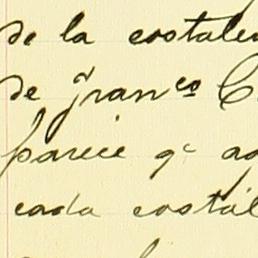 de la costale
de Franco C
parece qe ac
cada costál